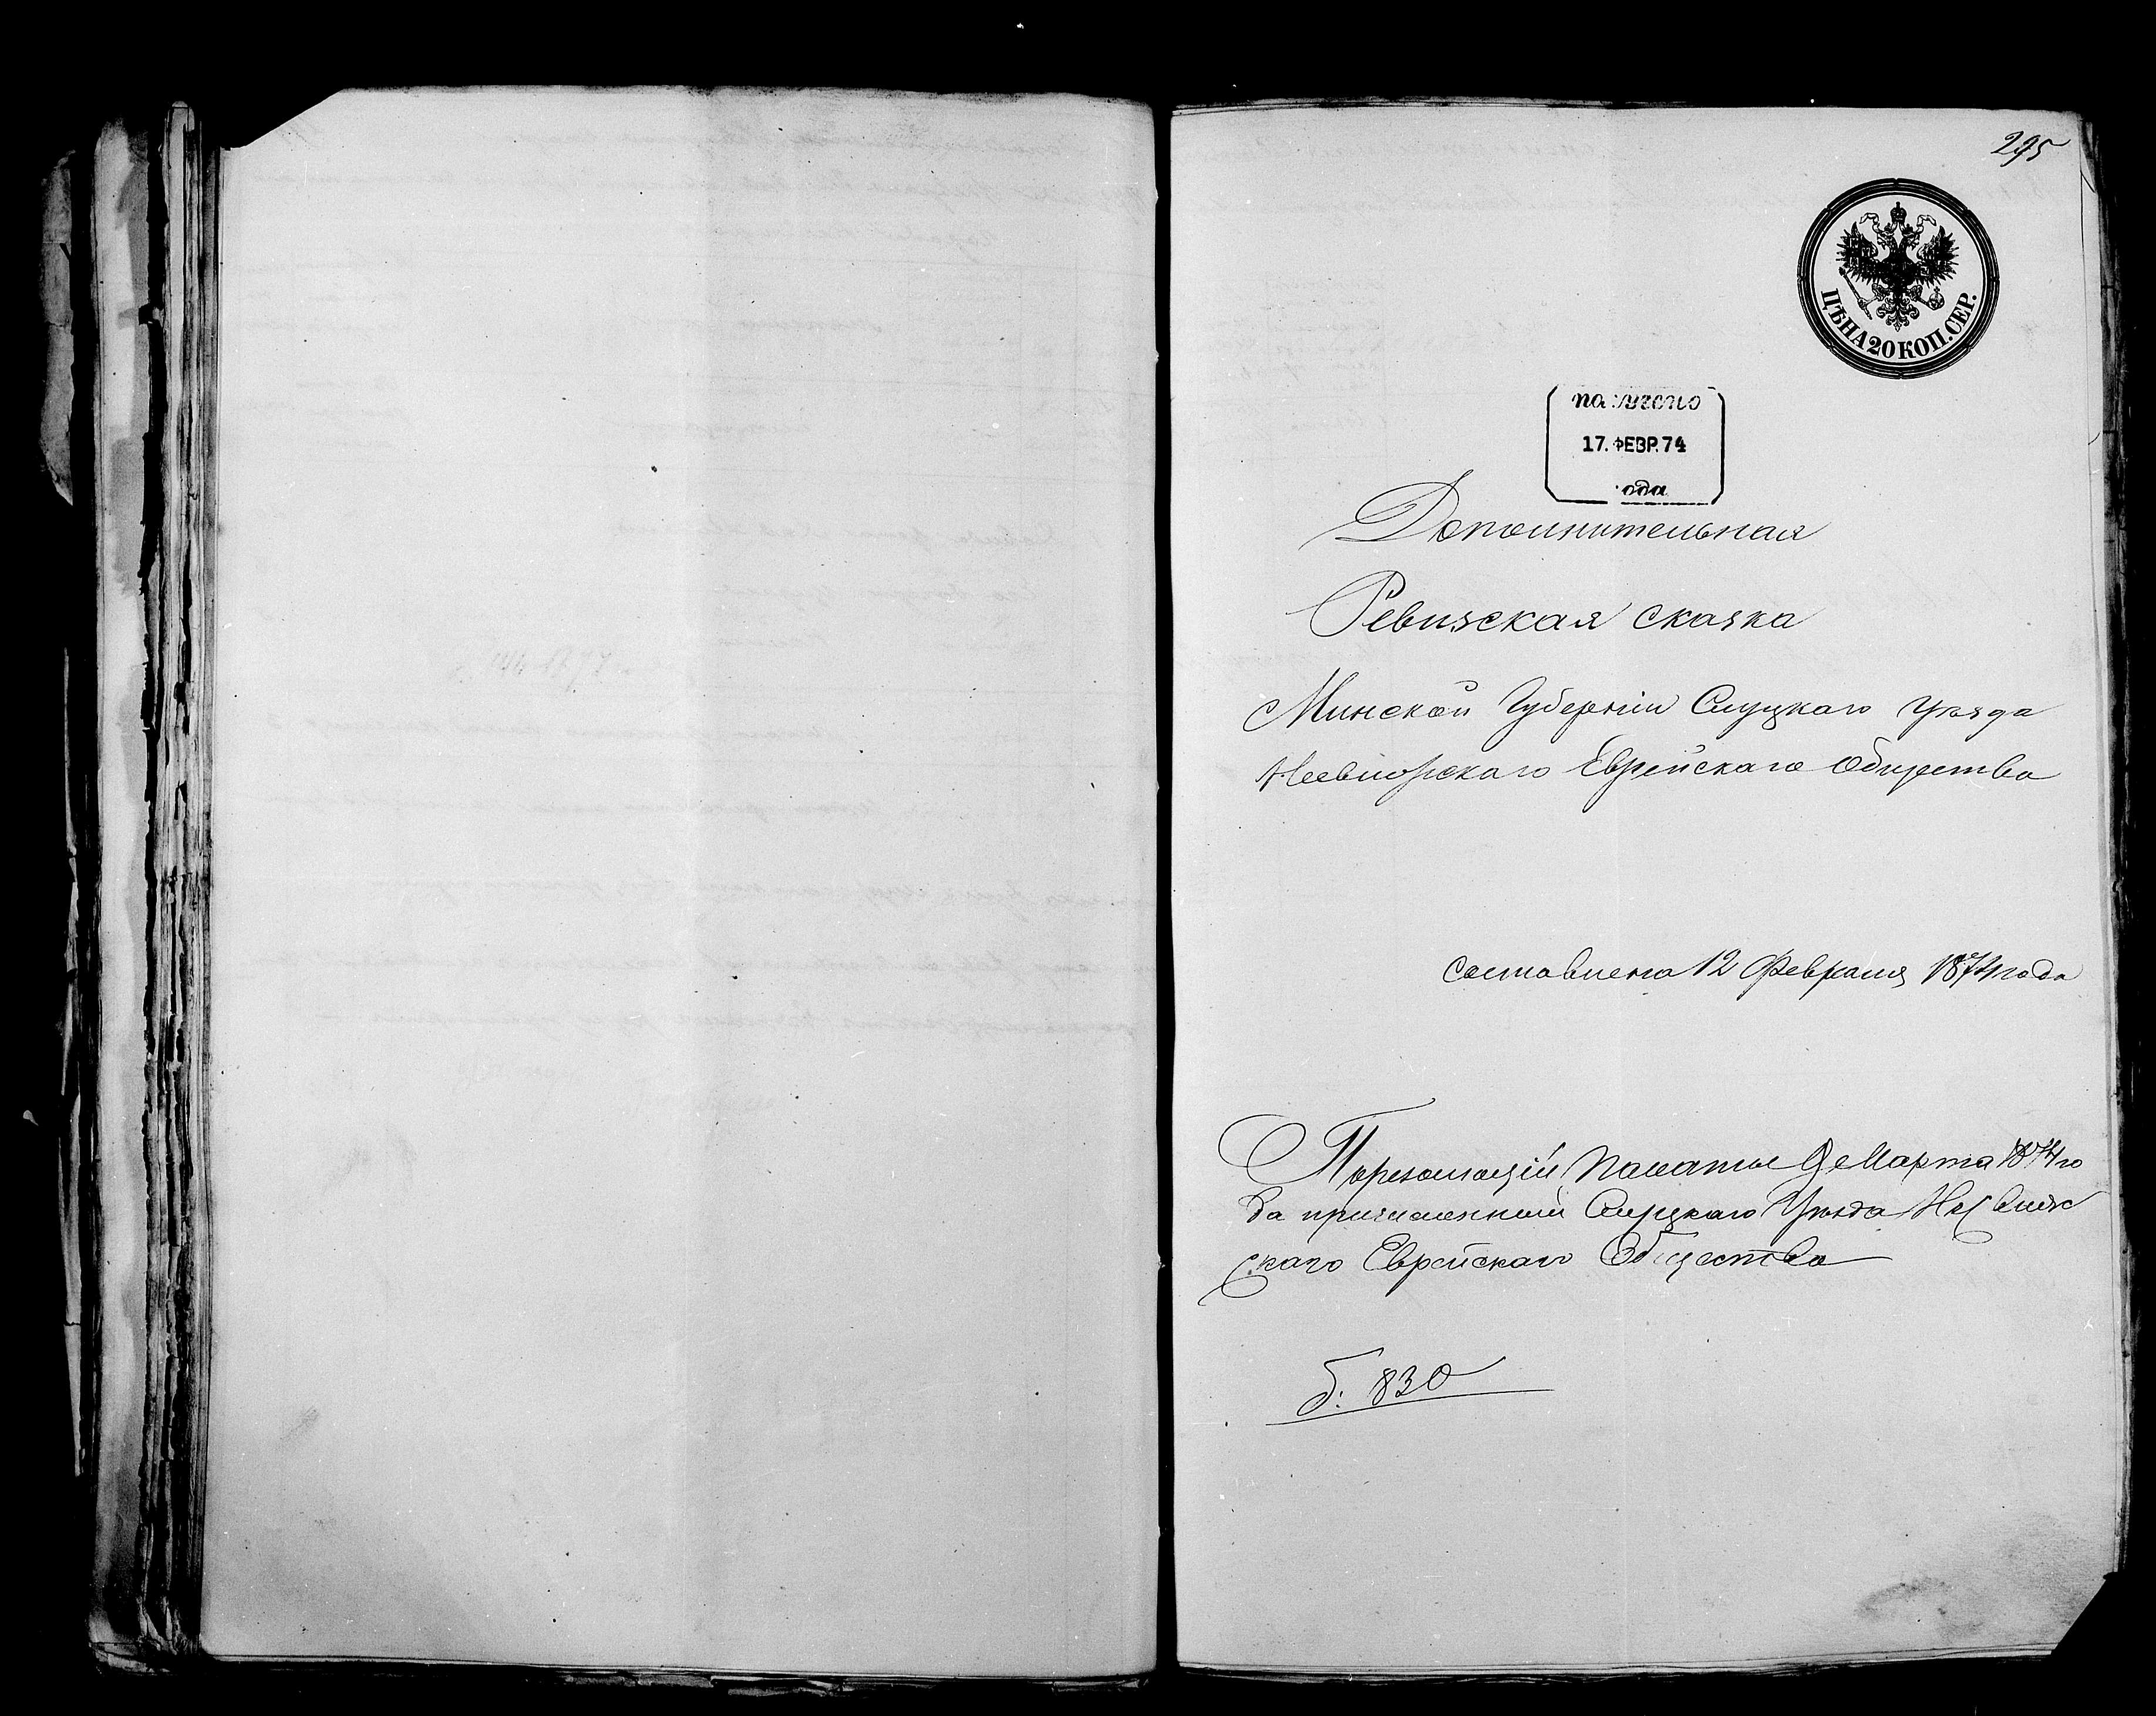 295
ЦѢНА 20 КОП. СЕР.
получено
17. ФЕВР. 74
года
Дополнительная
Ревизская сказка
Минской Губерніи Слуцкаго уѣзда
Несвижскаго Еврейскаго Общества
составлена 12 Февраля 1874 года
По резолюціи Палаты Марта 1874 го
да причисленный Слуцкаго Уѣзда Несвиж
скаго Еврейскаго Общества
б: 830